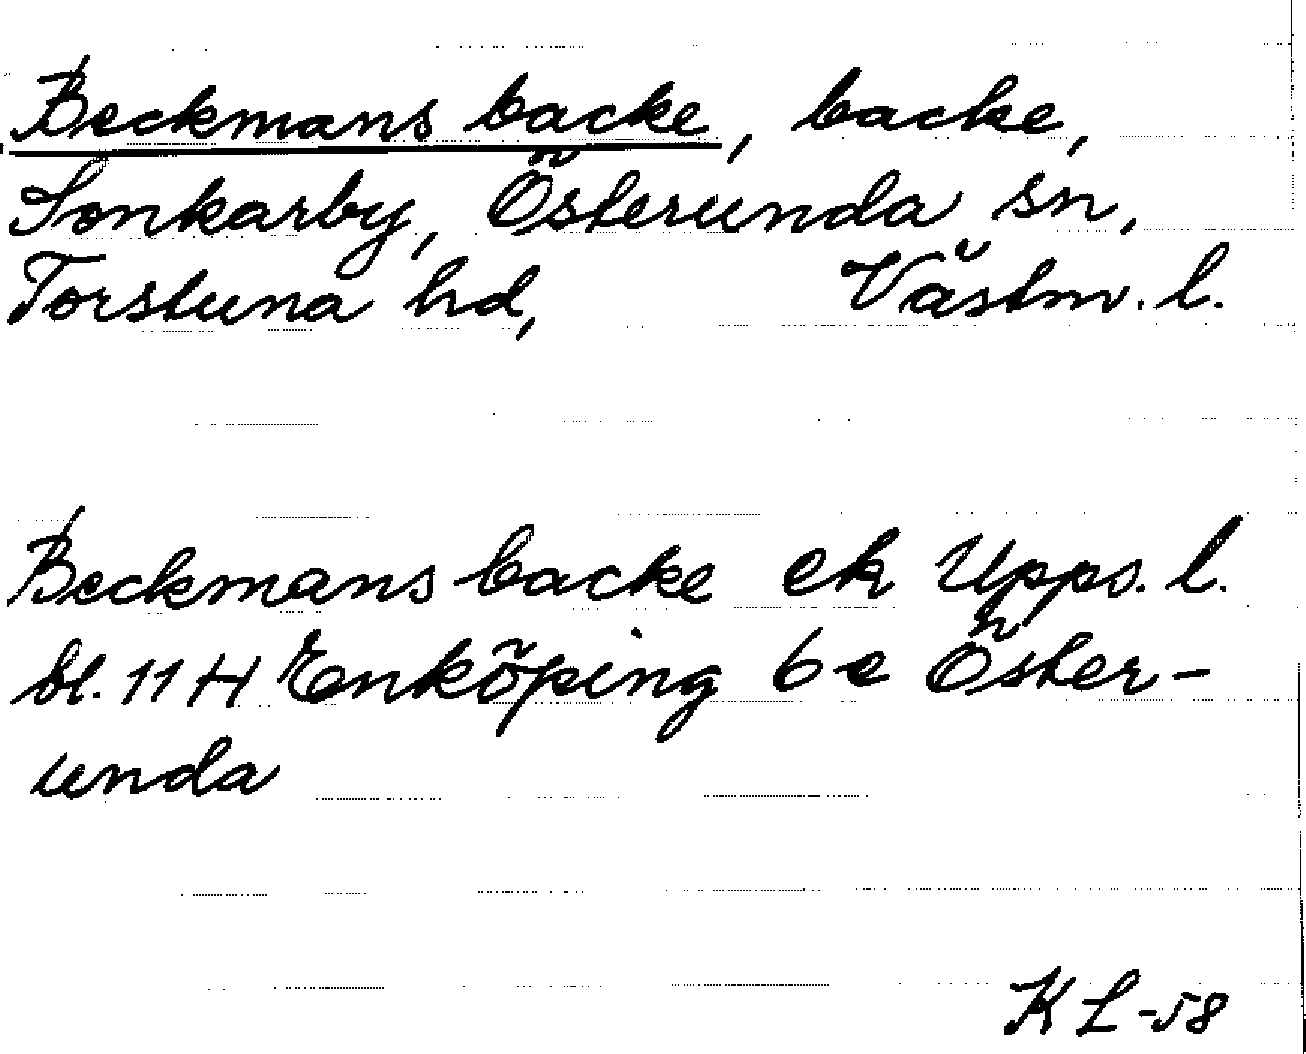 Beckmans backe, backe,
Sonkarby, Österunda sn,
Torstuna hd, Västm. l.
Beckmansbacke ek Upps. l.
bl. 11 H Enköping 6 e Öster-
unda
KL-58